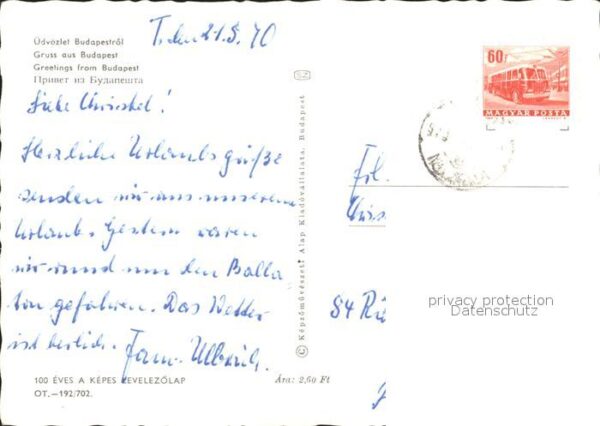 Üdvözlet Budapestről
Gruss aus Budapest
Greetings from Budapest
Привет из Будапешта
21.8.70
Liebe Christel!
Herzliche Urlaubsgrüße
senden wir aus unserem
Urlaub. Gestern waren
wir rund um den Balla-
ton gefahren. Das Wetter
ist herrlich. Fam. Ulbrich.
100 ÉVES A KÉPES LEVELEZŐLAP
OT.—192/702.
Ára: 2,60 Ft
© Képzőművészeti Alap Kiadóvállalata, Budapest
60f
MAGYAR POSTA
Frl.
Chris
84 Rie
privacy protection
Datenschutz